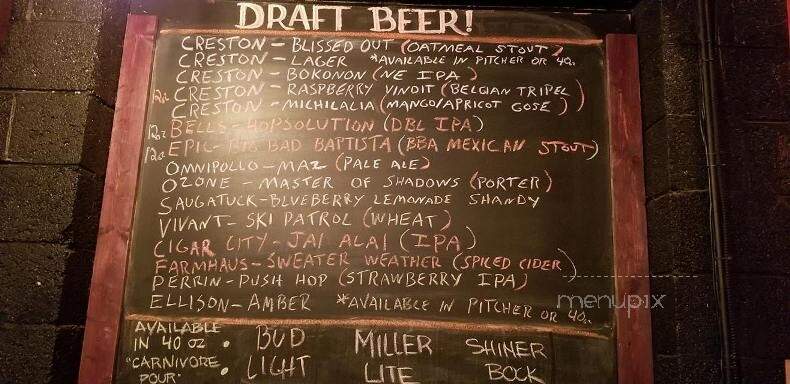 DRAFT BEER!
CRESTON - BLISSED OUT (OATMEAL STOUT)
CRESTON - LAGER *AVAILABLE IN PITCHER OR 40oz
CRESTON - BOKONON (NE IPA)
12oz CRESTON - RASPBERRY VINDIT (BELGIAN TRIPEL)
CRESTON - MICHILALIA (MANGO/APRICOT GOSE)
12oz BELLS - HOPSOLUTION (DBL IPA)
12oz EPIC - BIG BAD BAPTISTA (BBA MEXICAN STOUT)
OMNIPOLLO - MAZ (PALE ALE)
OZONE - MASTER OF SHADOWS (PORTER)
SAUGATUCK - BLUEBERRY LEMONADE SHANDY
VIVANT - SKI PATROL (WHEAT)
CIGAR CITY - JAI ALAI (IPA)
FARMHAUS - SWEATER WEATHER (SPICED CIDER)
PERRIN - PUSH HOP (STRAWBERRY IPA)
ELLISON - AMBER *AVAILABLE IN PITCHER OR 40oz
AVAILABLE IN 40 OZ "CARNIVORE POUR"
• BUD LIGHT
• MILLER LITE
• SHINER BOCK
menupix